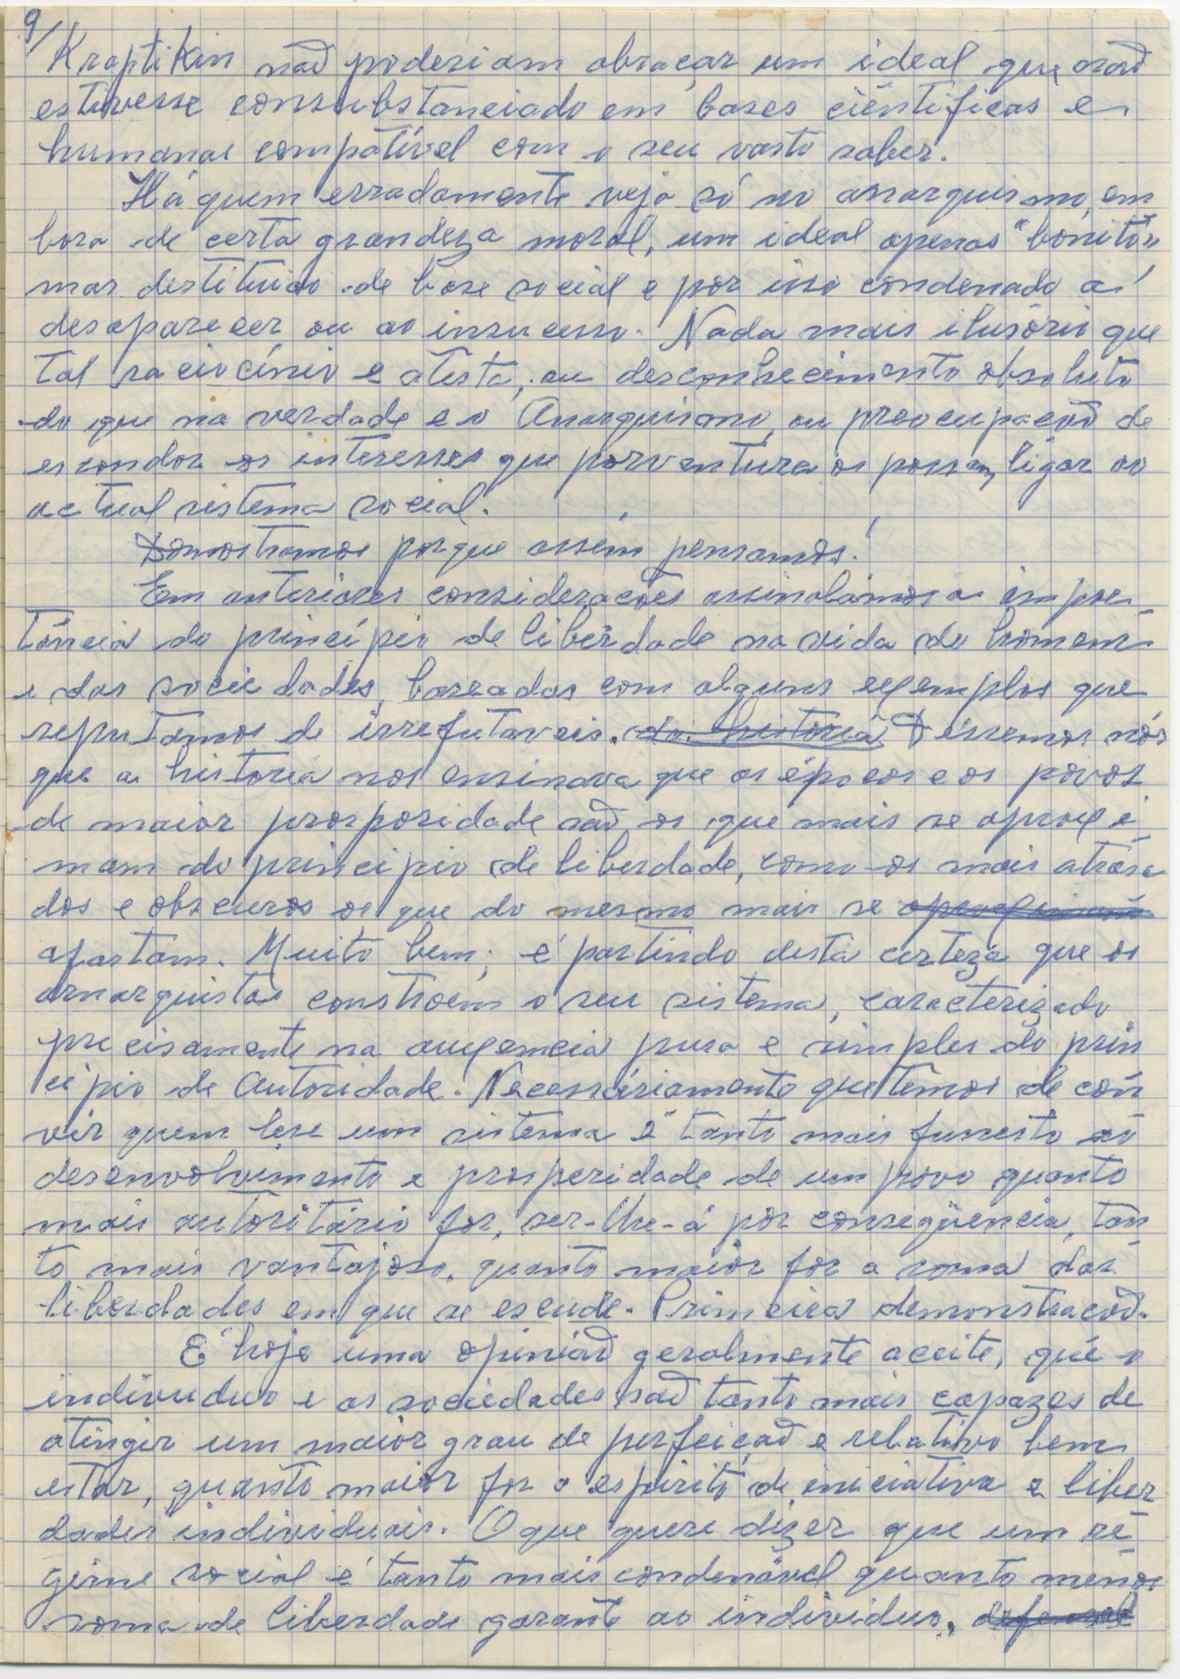 9/
Kroptikin não poderiam abraçar um ideal que não
estivesse consubstanciado em bases ciêntificas e
humanas compatível com o seu vasto saber.
Há quem erradamente veja só no anarquismo, em
bora de certa grandeza moral, um ideal apenas "bonito"
mas destituido de base social e por isso condenado a
desaparecer ou ao insucesso. Nada mais ilusório que
tal raciocínio e atesta, ou desconhecimento absoluto
do que na verdade e o Anarquismo, ou preocupação de
esconder os interesses que porventura os possam ligar ao
actual sistema social.
Demostramos porque assim pensamos.
Em anteriores considerações assinalámos a impor
tância do princípio de liberdade na vida do homem
e das sociedades, baseadas com alguns exemplos que
reputamos de irrefutaveis. da historia Dissemos nós
que a historia nos ensinava que as épocas e os povos
de maior prosporidade são os que mais se aproxi
mam do principio de liberdade, como os mais atrasa
dos e obscuros os que do mesmo mais se aproximam
afastam. Muito bem; é partindo desta certeza que os
anarquistas constroem o seu sistema, caracterizado
precisamente na auxencia pura e simples do prin
cipio de Autoridade. Necessáriamente que temos de con
vir quem lese um sistema é tanto mais funesto ao
desenvolvimento e prosperidade de um povo quanto
mais autoritário for, ser-lhe-á por conseqüencia, tan
to mais vantajoso, quanto maior for a soma das
liberdades em que se escude. Primeira demonstração.
É hoje uma opinião geralmente aceite, que o
individuo e as sociedades são tanto mais capazes de
atingir um maior grau de perfeição e relativo bem
estar, quanto maior for o espirito de iniciativa e liber
dades individuais. O que quere dizer que um re
gime social é tanto mais condenável quanto menos
soma de liberdade garante ao individuo,